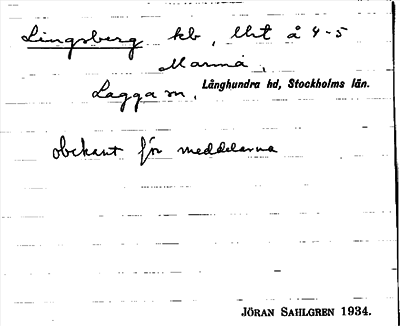 Lingsberg kb, Uht å 4-5
Marma,
Lagga sn, Långhundra hd, Stockholms län.
obekant för meddelarna
JÖRAN SAHLGREN 1934.